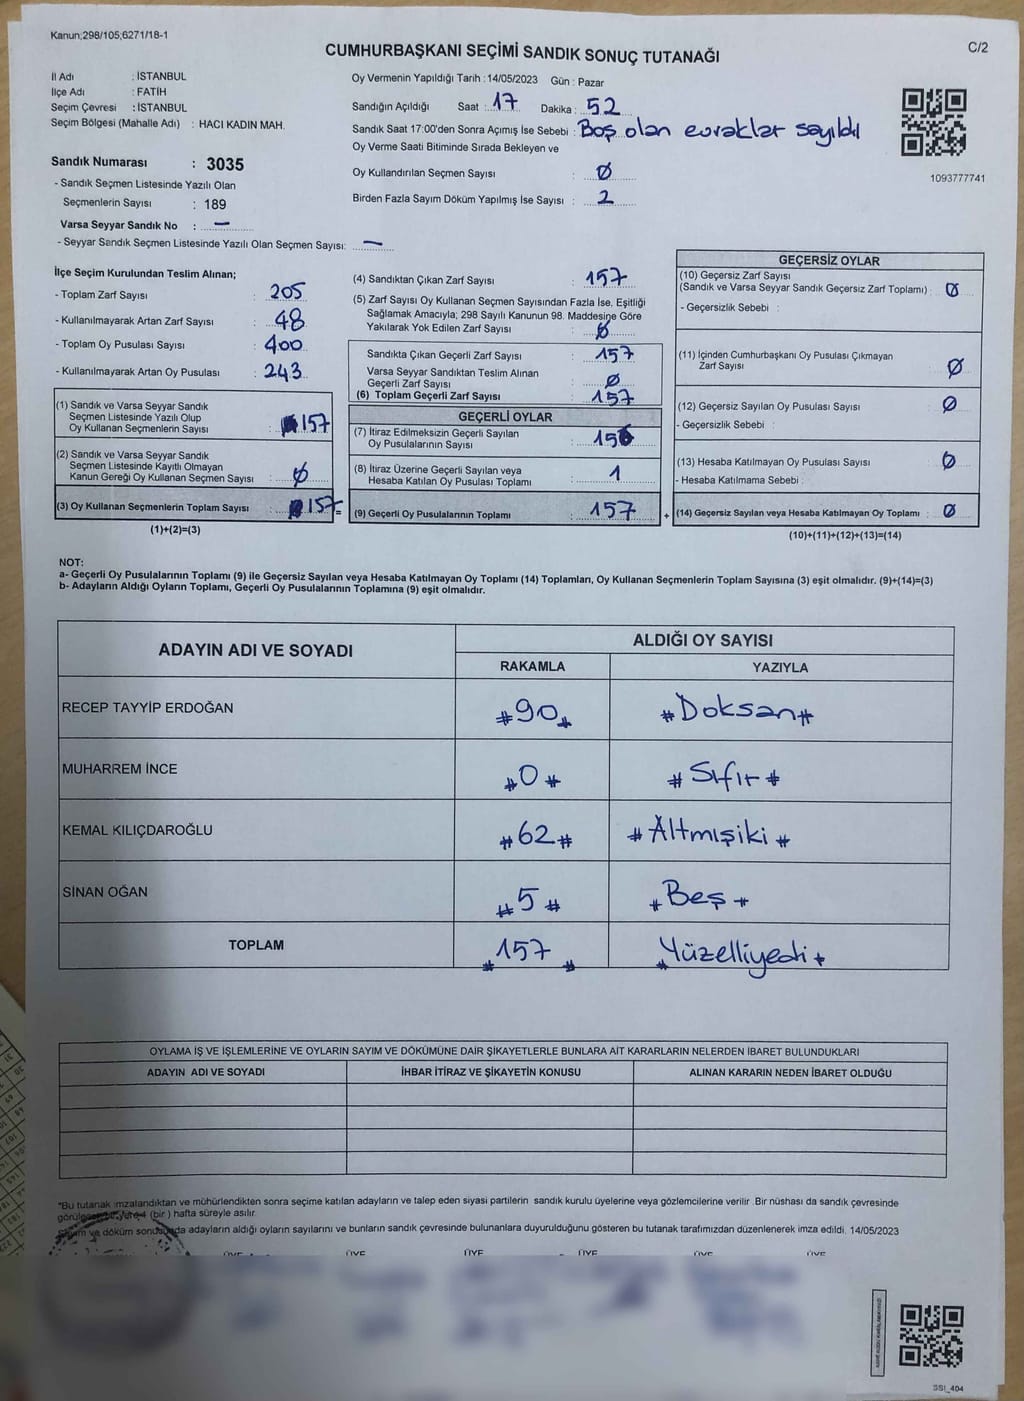 Kanun;298/105,6271/18-1
C/2
CUMHURBAŞKANI SEÇİMİ SANDIK SONUÇ TUTANAĞI
İl Adı : İSTANBUL
İlçe Adı : FATİH
Seçim Çevresi : İSTANBUL
Seçim Bölgesi (Mahalle Adı) : HACI KADIN MAH.
Sandık Numarası : 3035
- Sandık Seçmen Listesinde Yazılı Olan
Seçmenlerin Sayısı : 189
Varsa Seyyar Sandık No : —
- Seyyar Sandık Seçmen Listesinde Yazılı Olan Seçmen Sayısı: —
Oy Vermenin Yapıldığı Tarih : 14/05/2023 Gün : Pazar
Sandığın Açıldığı Saat : 17 Dakika : 52
Sandık Saat 17:00'den Sonra Açımış İse Sebebi : Boş olan evraklar sayıldı
Oy Verme Saati Bitiminde Sırada Bekleyen ve
Oy Kullandırılan Seçmen Sayısı : Ø
Birden Fazla Sayım Döküm Yapılmış İse Sayısı : 2
1093777741
İlçe Seçim Kurulundan Teslim Alınan;
- Toplam Zarf Sayısı : 205
- Kullanılmayarak Artan Zarf Sayısı : 48
- Toplam Oy Pusulası Sayısı : 400
- Kullanılmayarak Artan Oy Pusulası : 243
(1) Sandık ve Varsa Seyyar Sandık
Seçmen Listesinde Yazılı Olup
Oy Kullanan Seçmenlerin Sayısı : 157
(2) Sandık ve Varsa Seyyar Sandık
Seçmen Listesinde Kayıtlı Olmayan
Kanun Gereği Oy Kullanan Seçmen Sayısı : Ø
(3) Oy Kullanan Seçmenlerin Toplam Sayısı : 157 =
(1)+(2)=(3)
(4) Sandıktan Çıkan Zarf Sayısı : 157
(5) Zarf Sayısı Oy Kullanan Seçmen Sayısından Fazla İse, Eşitliği
Sağlamak Amacıyla; 298 Sayılı Kanunun 98. Maddesine Göre
Yakılarak Yok Edilen Zarf Sayısı : Ø
Sandıkta Çıkan Geçerli Zarf Sayısı : 157
Varsa Seyyar Sandıktan Teslim Alınan
Geçerli Zarf Sayısı : Ø
(6) Toplam Geçerli Zarf Sayısı : 157
GEÇERLİ OYLAR
(7) İtiraz Edilmeksizin Geçerli Sayılan
Oy Pusulalarının Sayısı : 156
(8) İtiraz Üzerine Geçerli Sayılan veya
Hesaba Katılan Oy Pusulası Toplamı : 1
(9) Geçerli Oy Pusulalarının Toplamı : 157 +
GEÇERSİZ OYLAR
(10) Geçersiz Zarf Sayısı
(Sandık ve Varsa Seyyar Sandık Geçersiz Zarf Toplamı) : Ø
- Geçersizlik Sebebi :
(11) İçinden Cumhurbaşkanı Oy Pusulası Çıkmayan
Zarf Sayısı : Ø
(12) Geçersiz Sayılan Oy Pusulası Sayısı : Ø
- Geçersizlik Sebebi :
(13) Hesaba Katılmayan Oy Pusulası Sayısı : Ø
- Hesaba Katılmama Sebebi :
(14) Geçersiz Sayılan veya Hesaba Katılmayan Oy Toplamı : Ø
(10)+(11)+(12)+(13)=(14)
NOT:
a- Geçerli Oy Pusulalarının Toplamı (9) ile Geçersiz Sayılan veya Hesaba Katılmayan Oy Toplamı (14) Toplamları, Oy Kullanan Seçmenlerin Toplam Sayısına (3) eşit olmalıdır. (9)+(14)=(3)
b- Adayların Aldığı Oyların Toplamı, Geçerli Oy Pusulalarının Toplamına (9) eşit olmalıdır.
ADAYIN ADI VE SOYADI
ALDIĞI OY SAYISI
RAKAMLA YAZIYLA
RECEP TAYYİP ERDOĞAN #90# #Doksan#
MUHARREM İNCE #0# #Sıfır#
KEMAL KILIÇDAROĞLU #62# #Altmışiki#
SİNAN OĞAN #5# #Beş#
TOPLAM #157# #Yüzelliyedi#
OYLAMA İŞ VE İŞLEMLERİNE VE OYLARIN SAYIM VE DÖKÜMÜNE DAİR ŞİKAYETLERLE BUNLARA AİT KARARLARIN NELERDEN İBARET BULUNDUKLARI
ADAYIN ADI VE SOYADI İHBAR İTİRAZ VE ŞİKAYETİN KONUSU ALINAN KARARIN NEDEN İBARET OLDUĞU
*Bu tutanak imzalandıktan ve mühürlendikten sonra seçime katılan adayların ve talep eden siyasi partilerin sandık kurulu üyelerine veya gözlemcilerine verilir. Bir nüshası da sandık çevresinde
(bir) hafta süreyle asılır.
ve döküm adayların aldığı oyların sayılarını ve bunların sandık çevresinde bulunanlara duyurulduğunu gösteren bu tutanak tarafımızdan düzenlenerek imza edildi. 14/05/2023
ÜYE ÜYE ÜYE ÜYE ÜYE ÜYE
SSI_404